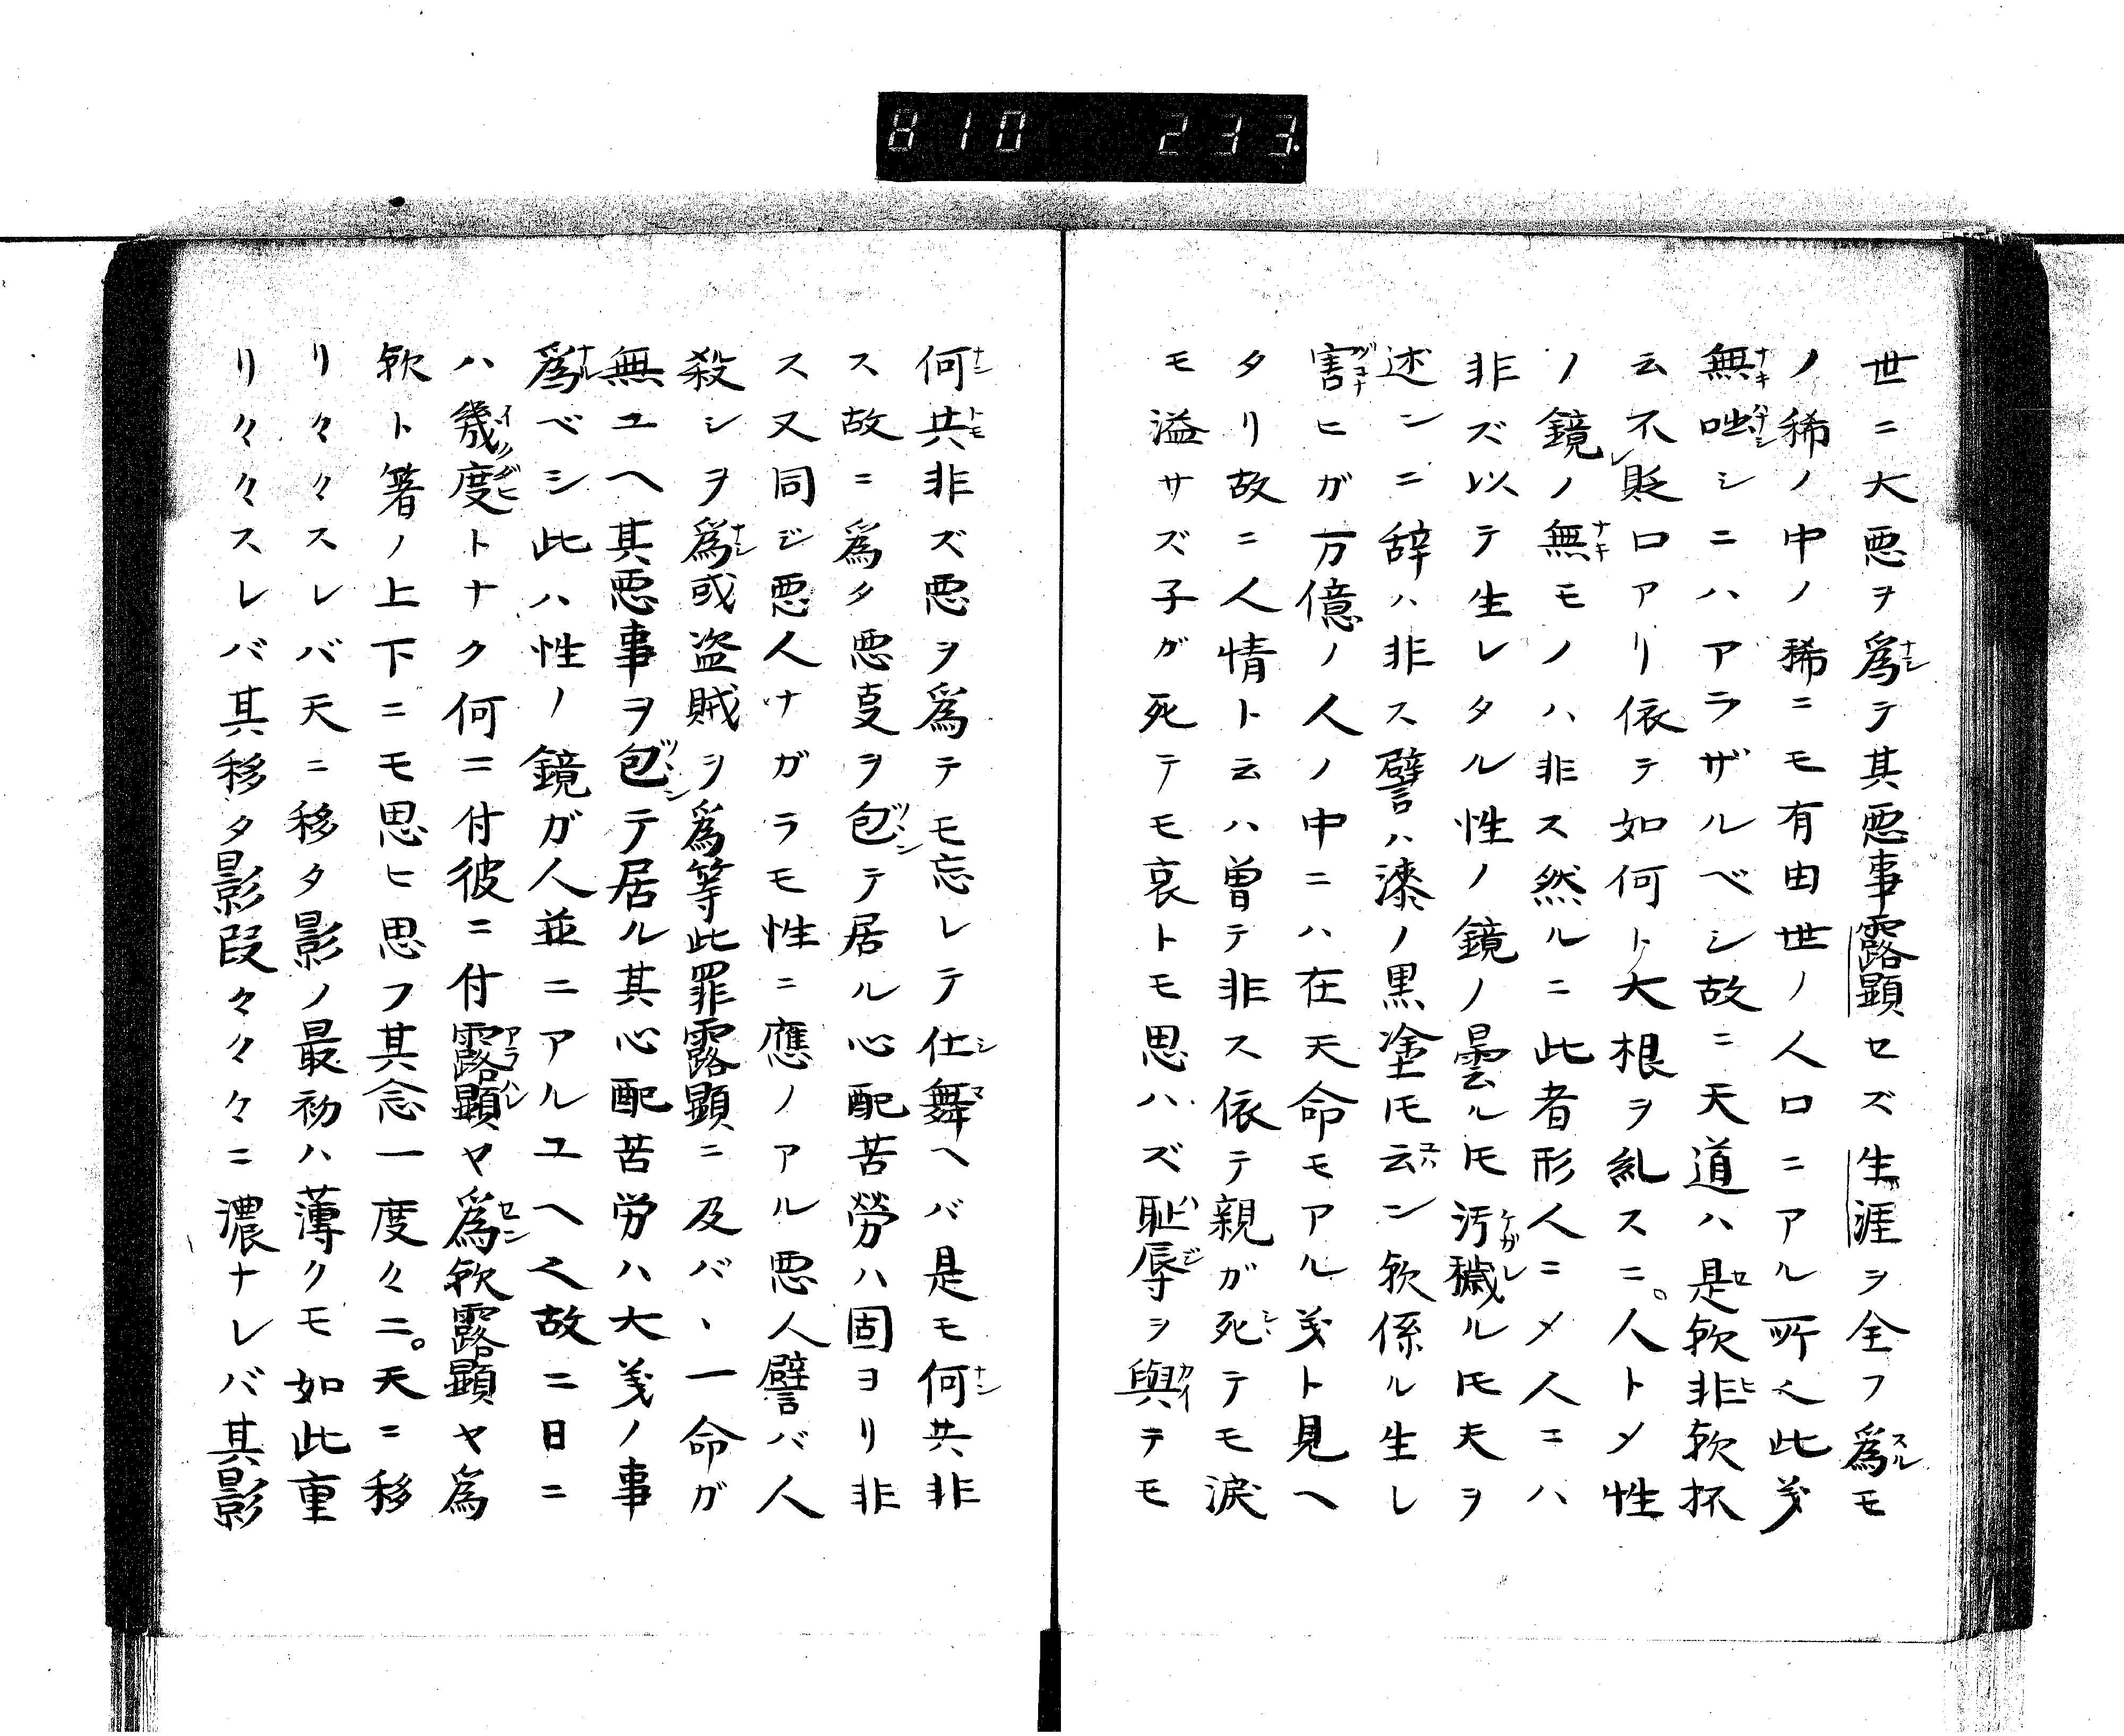 810 233.
世ニ大悪ヲ為テ其悪事露顕セズ生涯ヲ全フ為モ
ノ稀ノ中ノ稀ニモ有由世ノ人口ニアル所也此𛀁
無咄シニハアラザルベシ故ニ天道ハ是欤非欤抔
云不貶口アリ依テ如何ト大根ヲ糺スニ。人トメ性
ノ鏡ノ無モノハ非ス然ルニ此者形人ニメ人ニハ
非ズ以テ生レタル性ノ鏡ノ曇ルモ汚穢ルモ夫ヲ
述ンニ辞ハ非ス譬ハ漆ノ黒塗モ云ン欤係ル生レ
害ヒガ万億ノ人ノ中ニハ在天命モアル義ト見ヘ
タリ故ニ人情ト云ハ曽テ非ス依テ親ガ死テモ涙
モ溢サズ子ガ死テモ哀トモ思ハズ恥辱ヲ與テモ
何共非ズ悪ヲ為テモ忘レテ仕舞ヘバ是モ何共非
ス故ニ為タ悪㕝ヲ包テ居ル心配苦労ハ固ヨリ非
ス又同ジ悪人ナガラモ性ニ應ノアル悪人譬バ人
殺シヲ為或盗賊ヲ為等此罪露顕ニ及バヽ一命ガ
無ユヘ其悪事ヲ包テ居ル其心配苦労ハ大義ノ事
為ベシ此ハ性ノ鏡ガ人並ニアルユヘ也故ニ日ニ
ハ幾度トナク何ニ付彼ニ付露顕ヤ為欤露顕ヤ為
欤ト箸ノ上下ニモ思ヒ思フ其念一度々ニ。天ニ移
リ々々スレバ天ニ移タ影ノ最初ハ薄クモ如此重
リ々々スレバ其移タ影段々々々ニ濃ナレバ其影